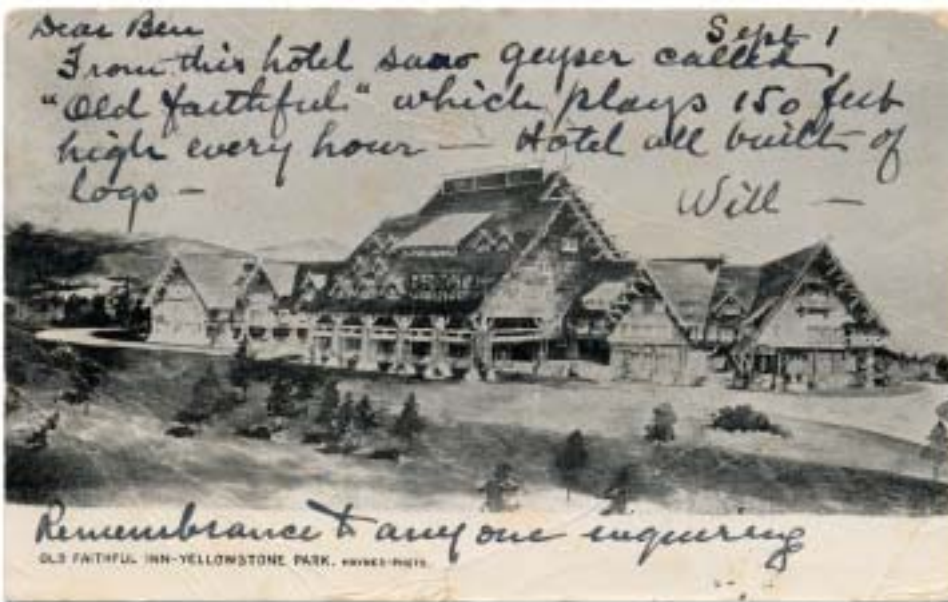 Dear Ben
Sept 1
From this hotel saw geyser called
"Old Faithful" which plays 150 feet
high every hour — Hotel all built of
logs —
Will —
Remembrance to any one inquiring
OLD FAITHFUL INN-YELLOWSTONE PARK. HAYNES-PHOTO.